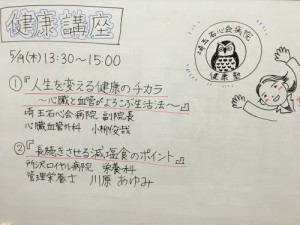 健康講座
5/19(木) 13:30〜15:00
①『人生を変える健康のチカラ
〜心臓と血管がよろこぶ生活法〜』
埼玉石心会病院 副院長
心臓血管外科 小柳俊哉
②『長続きさせる減塩食のポイント』
所沢ロイヤル病院 栄養科
管理栄養士 川原 あゆみ
埼玉石心会病院
健康塾